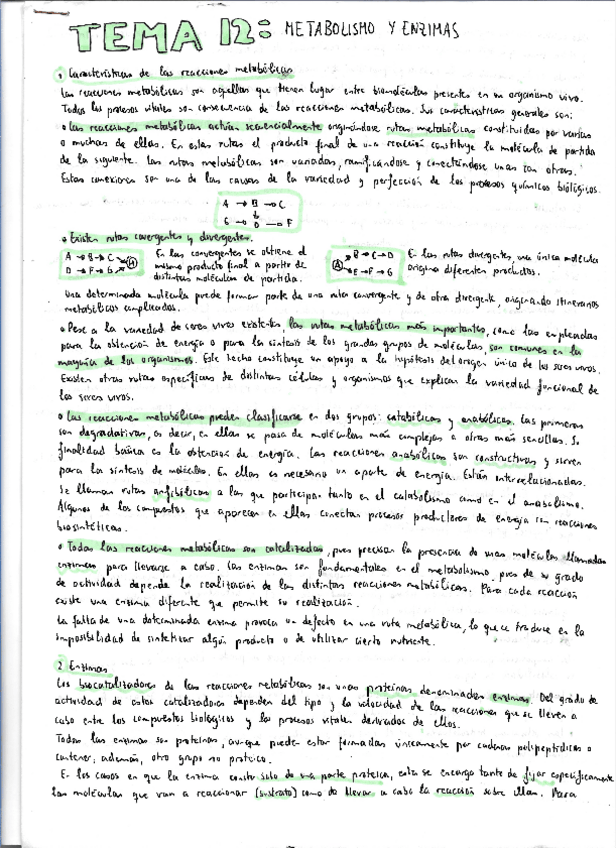 TEMA 12: METABOLISMO Y ENZIMAS
1. Características de las reacciones metabólicas
Las reacciones metabólicas son aquellas que tienen lugar entre biomoléculas presentes en un organismo vivo.
Todos los procesos vitales son consecuencia de las reacciones metabólicas. Sus características generales son:
• Las reacciones metabólicas actúan secuencialmente originándose rutas metabólicas constituidas por varias
o muchas de ellas. En estas rutas el producto final de una reacción constituye la molécula de partida
de la siguiente. Las rutas metabólicas son variadas, ramificándose y conectándose unas con otras.
Estas conexiones son una de las causas de la variedad y perfección de los procesos químicos biológicos.
A → B → C
↓
G → D → F
• Existen rutas covergentes y divergentes.
A → B → C → H
D → F → G
En las convergentes se obtiene el
mismo producto final a partir de
distintas moléculas de partida.
A B → C → D
E → F → G
En las rutas divergentes, una única molécula
origina diferentes productos.
Una determinada molécula puede formar parte de una ruta convergente y de otra divergente, originando itinerarios
metabólicos complicados.
• Pese a la variedad de seres vivos existentes, las rutas metabólicas más importantes, como las empleadas
para la obtención de energía o para la síntesis de los grandes grupos de moléculas, son comunes en la
mayoría de los organismos. Este hecho constituye un apoyo a la hipótesis del origen único de los seres vivos.
Existen otras rutas específicas de distintas células y organismos que explican la variedad funcional de
los seres vivos.
• Las reacciones metabólicas pueden clasificarse en dos grupos: catabólicas y anabólicas. Las primeras
son degradativas, es decir, en ellas se pasa de moléculas más complejas a otras más sencillas. Su
finalidad básica es la obtención de energía. Las reacciones anabólicas son constructivas y sirven
para la síntesis de moléculas. En ellas es necesario un aporte de energía. Están interrelacionadas.
Se llaman rutas anfibólicas a las que participan tanto en el catabolismo como en el anabolismo.
Algunos de los compuestos que aparecen en ellas conectan procesos productores de energía con reacciones
biosintéticas.
• Todas las reacciones metabólicas son catalizadas, pues precisan la presencia de unas moléculas llamadas
enzimas para llevarse a cabo. Las enzimas son fundamentales en el metabolismo, pues de su grado
de actividad depende la realización de las distintas reacciones metabólicas. Para cada reacción
existe una enzima diferente que permite su realización.
La falta de una determinada enzima provoca un defecto en una ruta metabólica, lo que se traduce en la
imposibilidad de sintetizar algún producto o de utilizar cierto nutriente.
2. Enzimas
Los biocatalizadores de las reacciones metabólicas son unas proteínas denominadas enzimas. Del grado de
actividad de estos catalizadores dependen del tipo y la velocidad de las reacciones que se lleven a
cabo entre los compuestos biológicos y los procesos vitales derivados de ellos.
Todas las enzimas son proteínas, aunque pueden estar formadas únicamente por cadenas polipeptídicas o
contener, además, otro grupo no proteico.
En los casos en que la enzima conste solo de una parte proteica, esta se encarga tanto de fijar específicamente
las moléculas que van a reaccionar (sustrato) como de llevar a cabo la reacción sobre ellas. Para